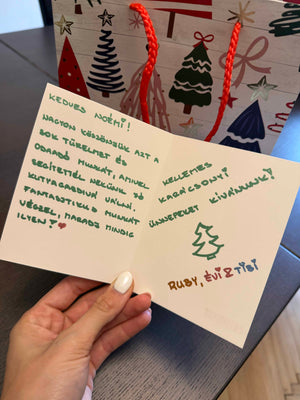 KEDVES NOÉMI!
NAGYON KÖSZÖNJÜK AZT A
SOK TÜRELMET ÉS
ODAADÓ MUNKÁT, AMIVEL
SEGÍTETTÉL NEKÜNK JÓ
KUTYAGAZDIVÁ VÁLNI.
FANTASZTIKUS MUNKÁT
VÉGZEL, MARADJ MINDIG
ILYEN! ❤
KELLEMES
KARÁCSONYI
ÜNNEPEKET KÍVÁNUNK!
RUBY, ÉVI & TIBI